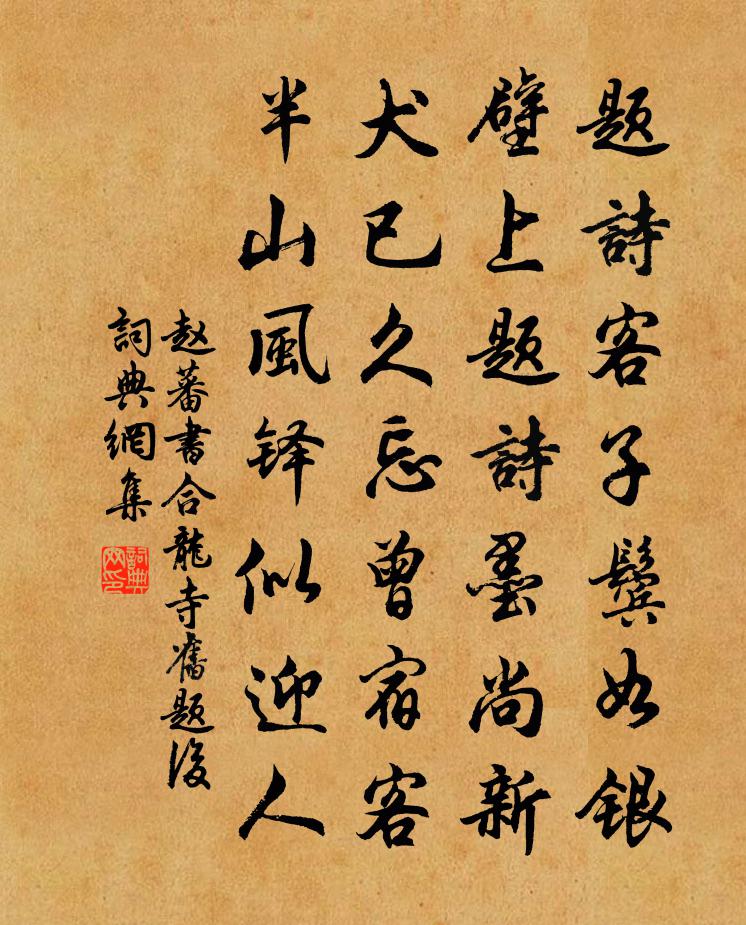 题詩客子鬓如銀
壁上題詩墨尚新
犬已久忘曾宿客
半山風铎似迎人
赵蕃書合龍寺舊题後
詞典網集
詞典網印